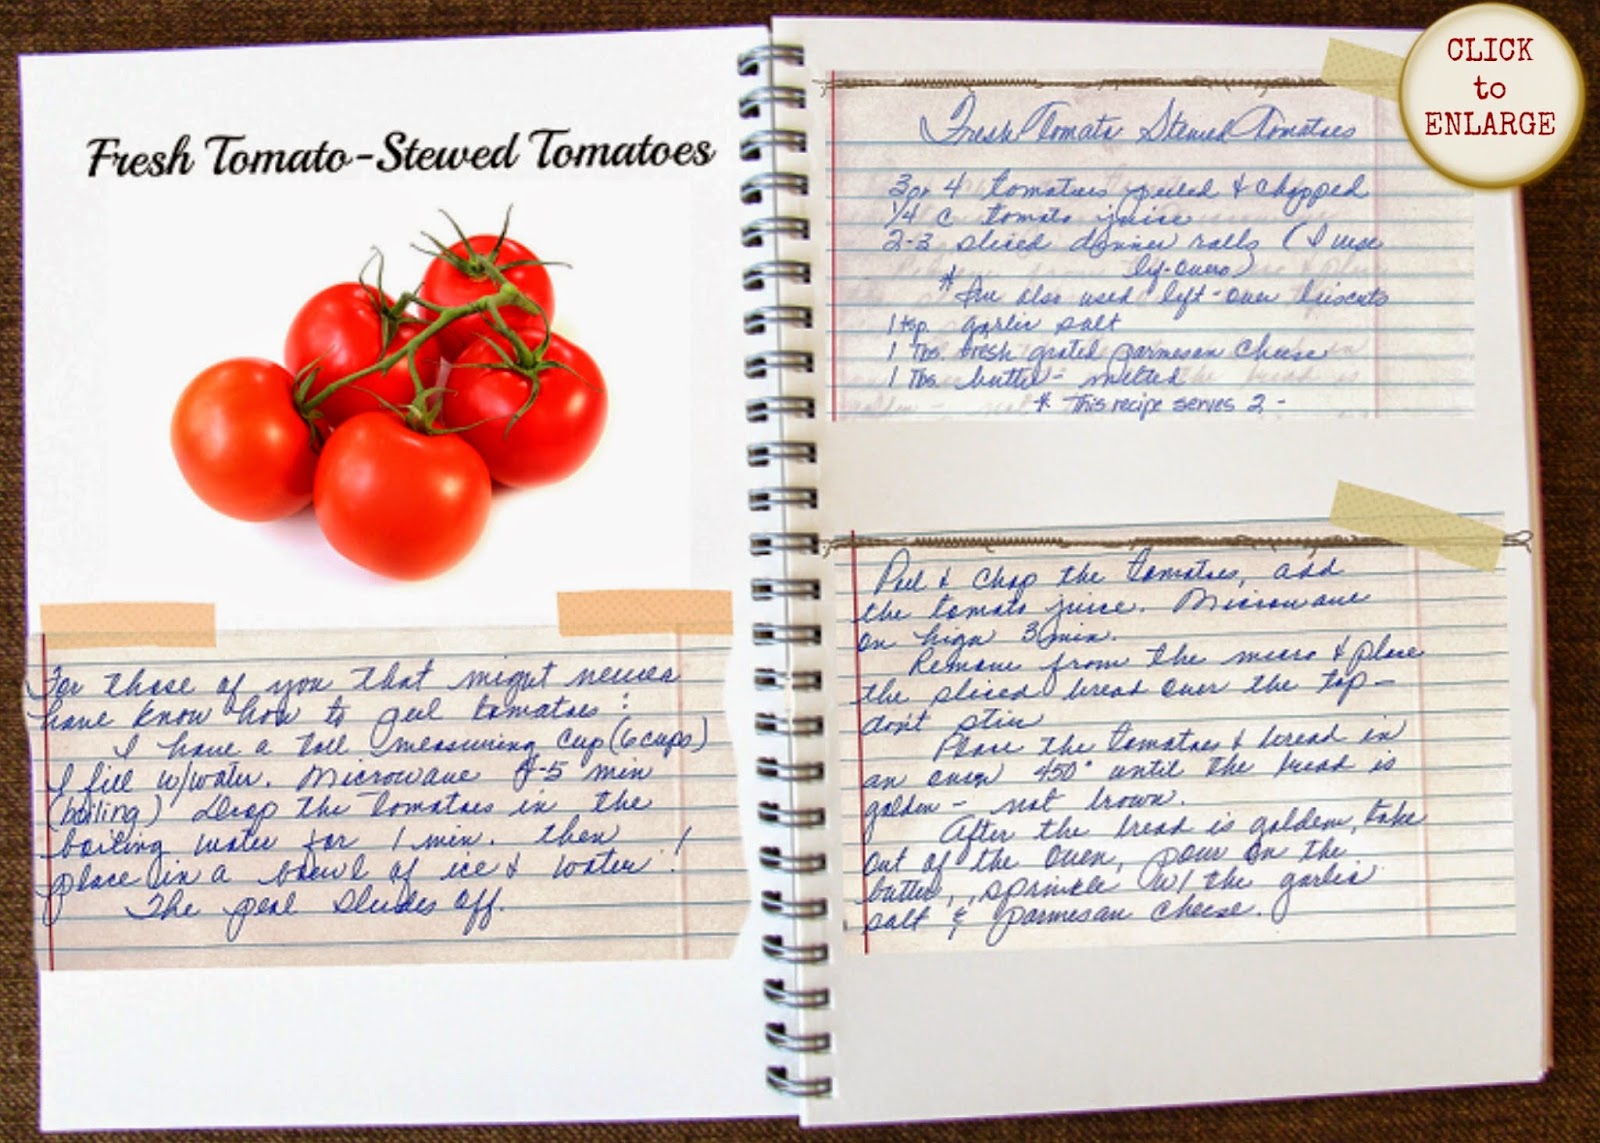 Fresh Tomato-Stewed Tomatoes
For those of you that might never
have know how to peel tomatoes:
I have a tall measuring cup (6 cups)
I fill w/water. Microwave 4-5 min
(boiling) Drop the tomatoes in the
boiling water for 1 min. then
place in a bowl of ice & water!
The peel slides off.
CLICK
to
ENLARGE
Fresh Tomato Stewed Tomatoes
3 or 4 tomatoes peeled & chopped
1/4 c tomato juice
2-3 sliced dinner rolls (I use
left-overs)
* I've also used left-over biscuts
1 tsp. garlic salt
1 Tbs. fresh grated parmesan cheese
1 Tbs. butter - melted
* This recipe serves 2 -
Peel & chop the tomatoes, add
the tomato juice. Microwave
on high 3 min.
Remove from the micro & place
the sliced bread over the top -
don't stir
Place the tomatoes & bread in
an oven 450° until the bread is
golden - not brown.
After the bread is golden, take
out of the oven, pour on the
butter, sprinkle w/ the garlic
salt & parmesan cheese.